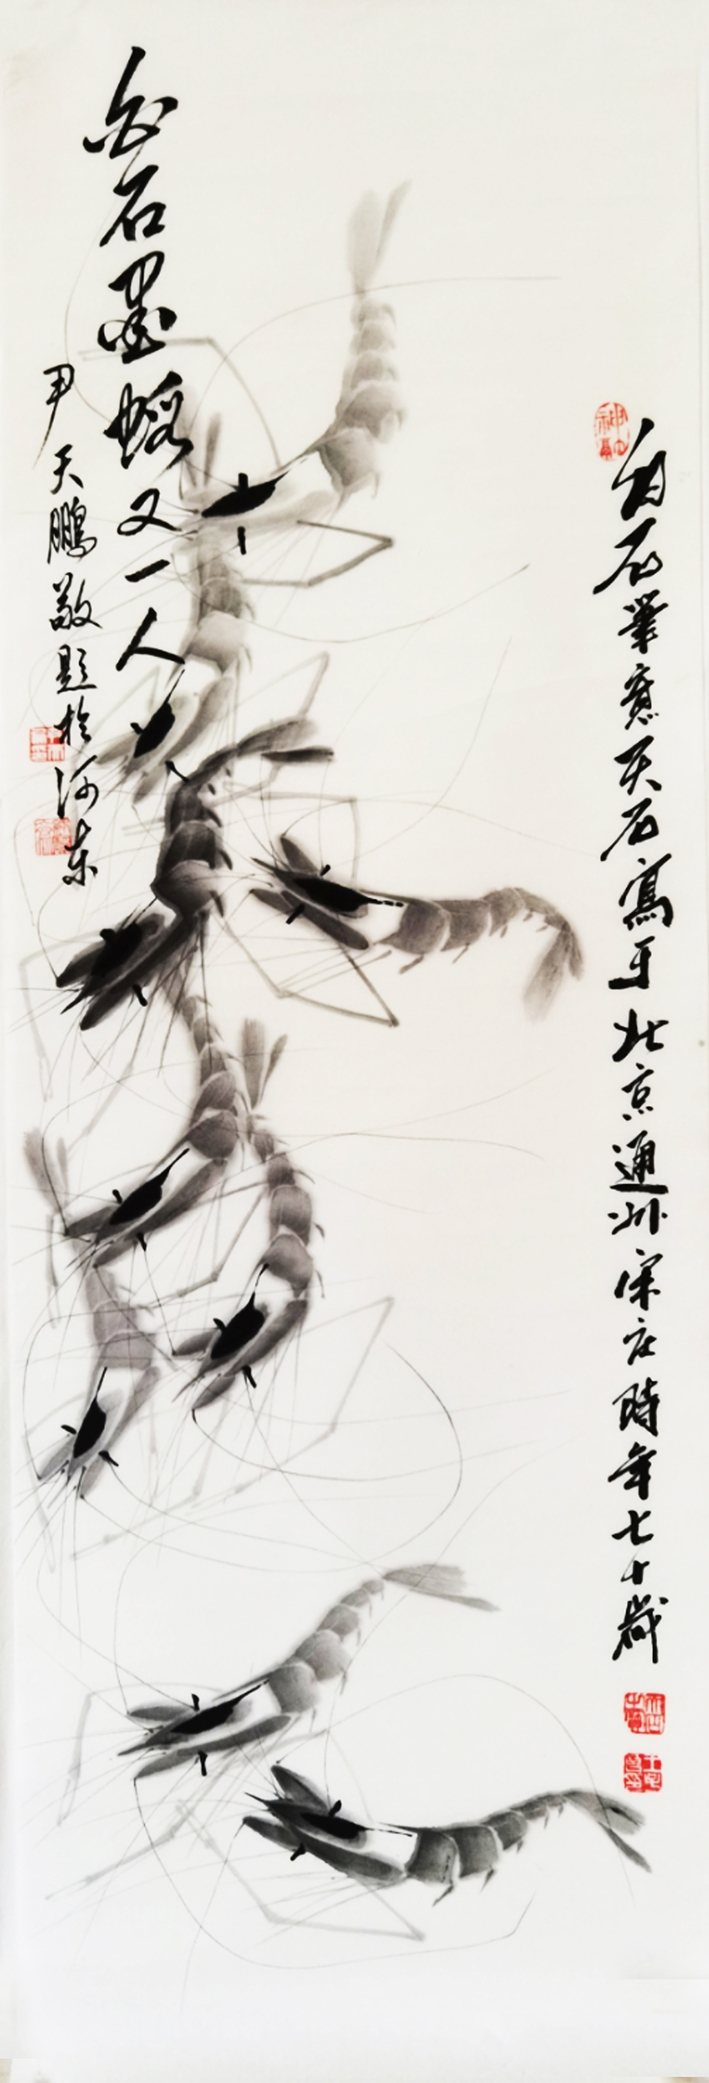 白石笔意天石寫于北京通州宋庄時年七十歲
白石墨蝦又一人
尹天鹏敬题於河东